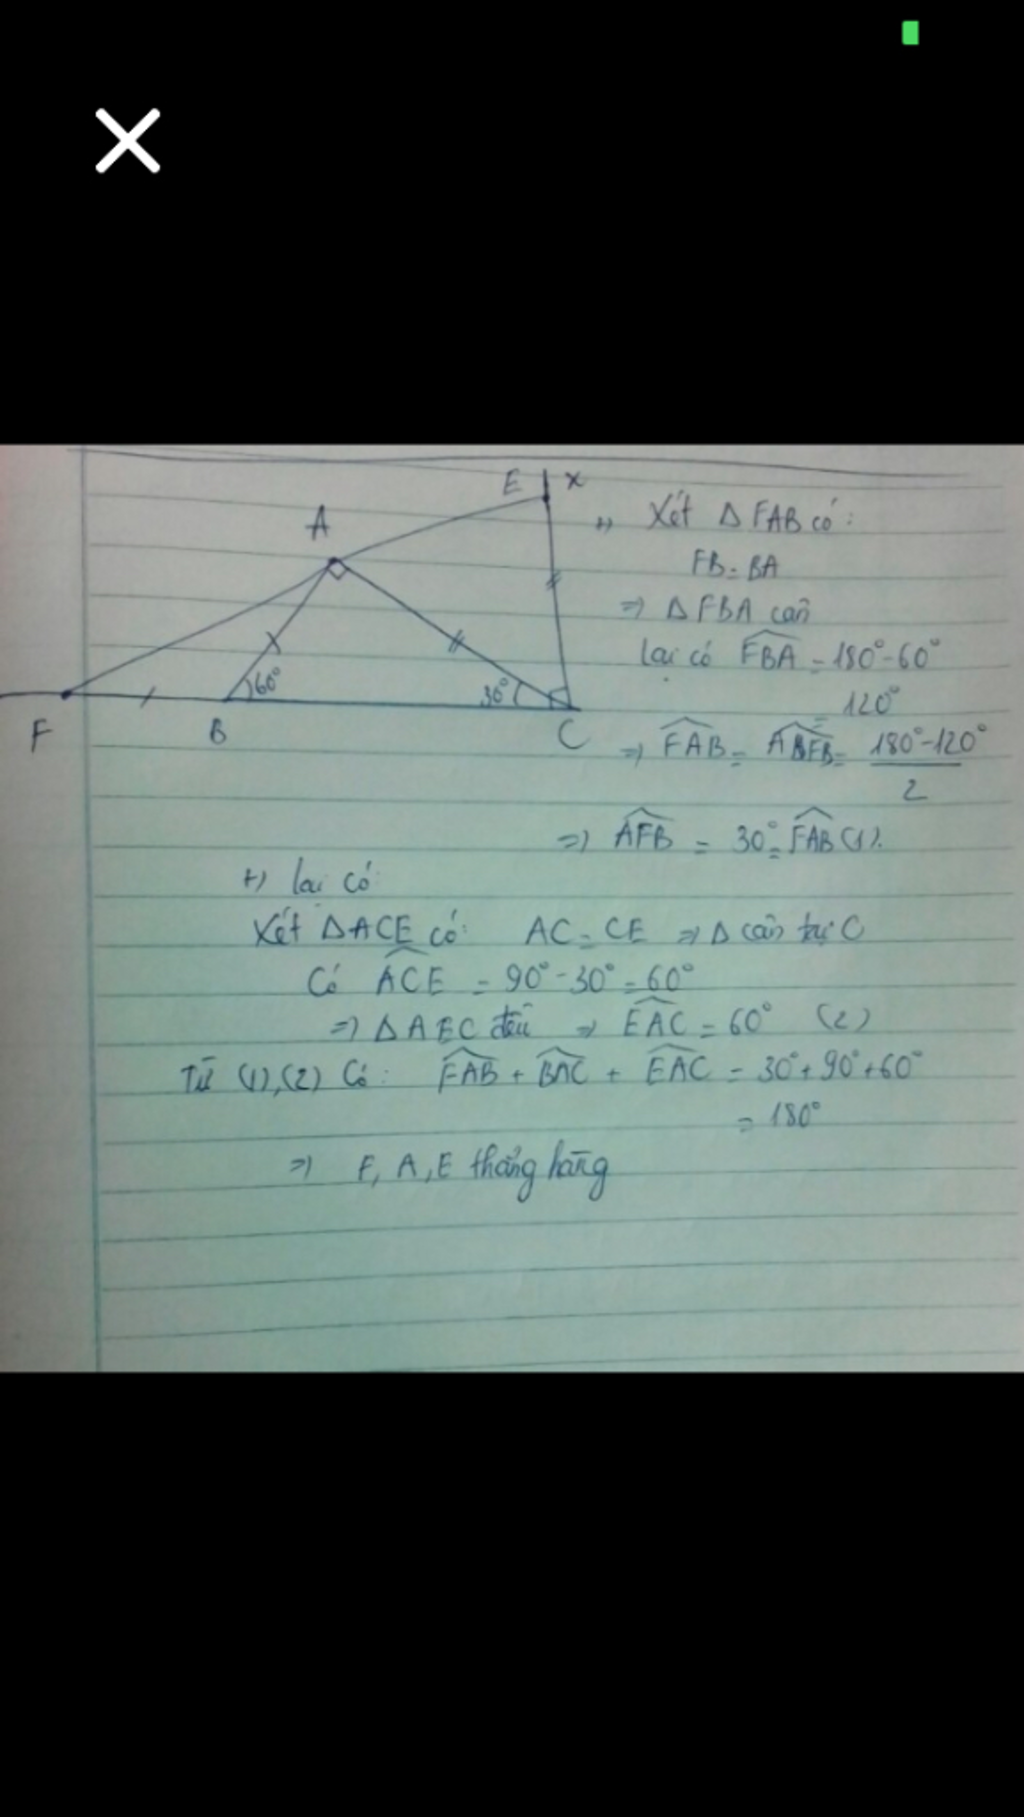 E x
A
60°
30°
F B C
+) Xét Δ FAB có:
FB = BA
=> Δ FBA cân
lại có FBA = 180° - 60°
= 120°
=> FAB = AFB = 180° - 120° / 2
=> AFB = 30° = FAB (1).
+) lại có:
Xét ΔACE có: AC = CE => Δ cân tại C
Có ACE = 90° - 30° = 60°
=> Δ AEC đều => EAC = 60° (2)
Từ (1), (2) Có: FAB + BAC + EAC = 30° + 90° + 60°
= 180°
=> F, A, E thẳng hàng